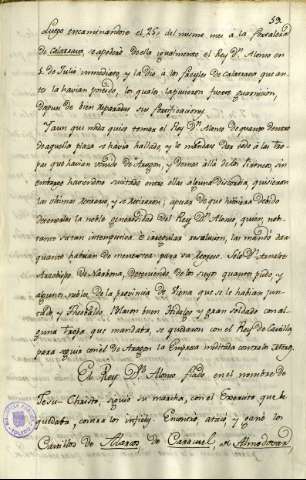 52
Luego encaminandose el 25,, del mismo mes á la fortaleza
de Calatrava, se apoderó de ella igualmente el Rey Dn. Alonso en
1. de Julio inmediato, y la dió á los freyles de Calatrava que an-
tes la havian poseido, los quales la pusieron fuerte guarnicion,
despues de bien reparadas sus fortificaciones.
Y aunque nada quiso tomar el Rey Dn. Alonso de quanto dentro
de aquella plaza se havia hallado, y lo mandase dar todo á las tro-
pas que havian venido de Aragon, y demas allá de los Pirineos, sin
embargo haviendose suscitado entre ellas alguna discordia, quisieron
las ultimas retirarse, y se retiraron, apesar de que hubiera debido
detenerlas la noble generosidad del Rey Dn. Alonso quien, not-
tan intempestiva resolucion, las mandó dar
quanto habian de menester para su regreso. Solo Dn. Arnaldo
Arzobispo de Narbona, deteniendo de los suyos quanto pudo, y
algunos nobles de la provincia de Viena que se le habian jun-
tado, y Theobaldo Blazon buen Hidalgo y gran Soldado con al-
guna tropa que mandaba, se quedaron con el Rey de Castilla
para seguir con el de Aragon la Empresa meditada contra los
El Rey Dn. Alonso, fiado en el nombre de
Jesu-Christo, siguió su marcha, con el Exercito que le
quedaba, contra los infieles. Encontró, atacó y ganó los
Castillos de Alarcos, de Caracuel, de Almodovar